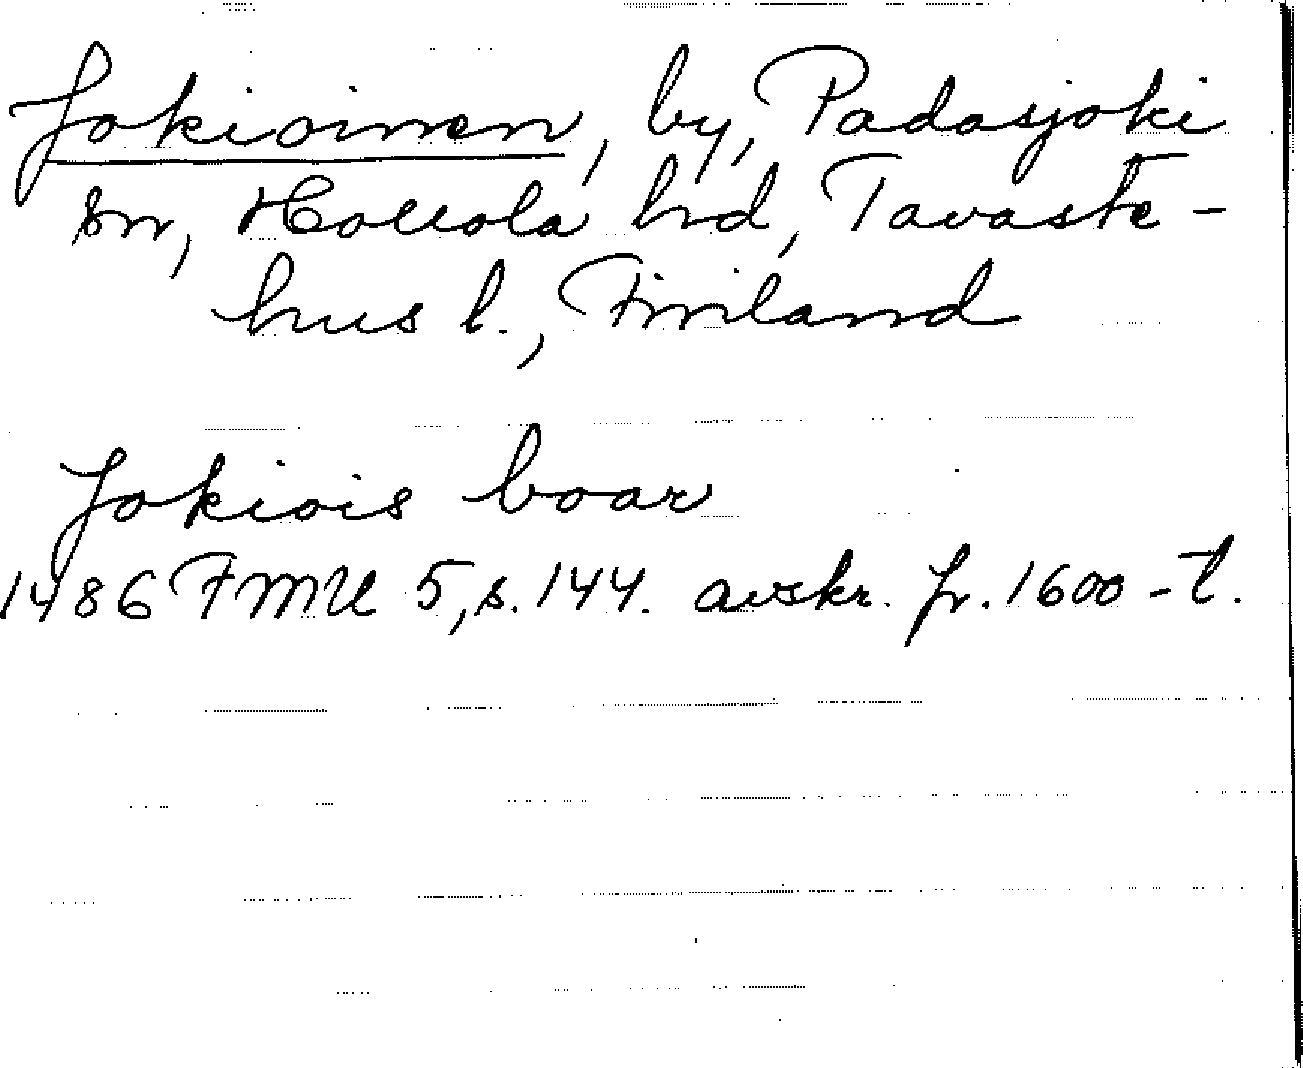 Jokioinen, by, Padasjoki
sn, Hollola hd, Tavaste-
hus l., Finland
Jokiois boar
1486 FMU 5, s. 144. avskr. fr. 1600-t.